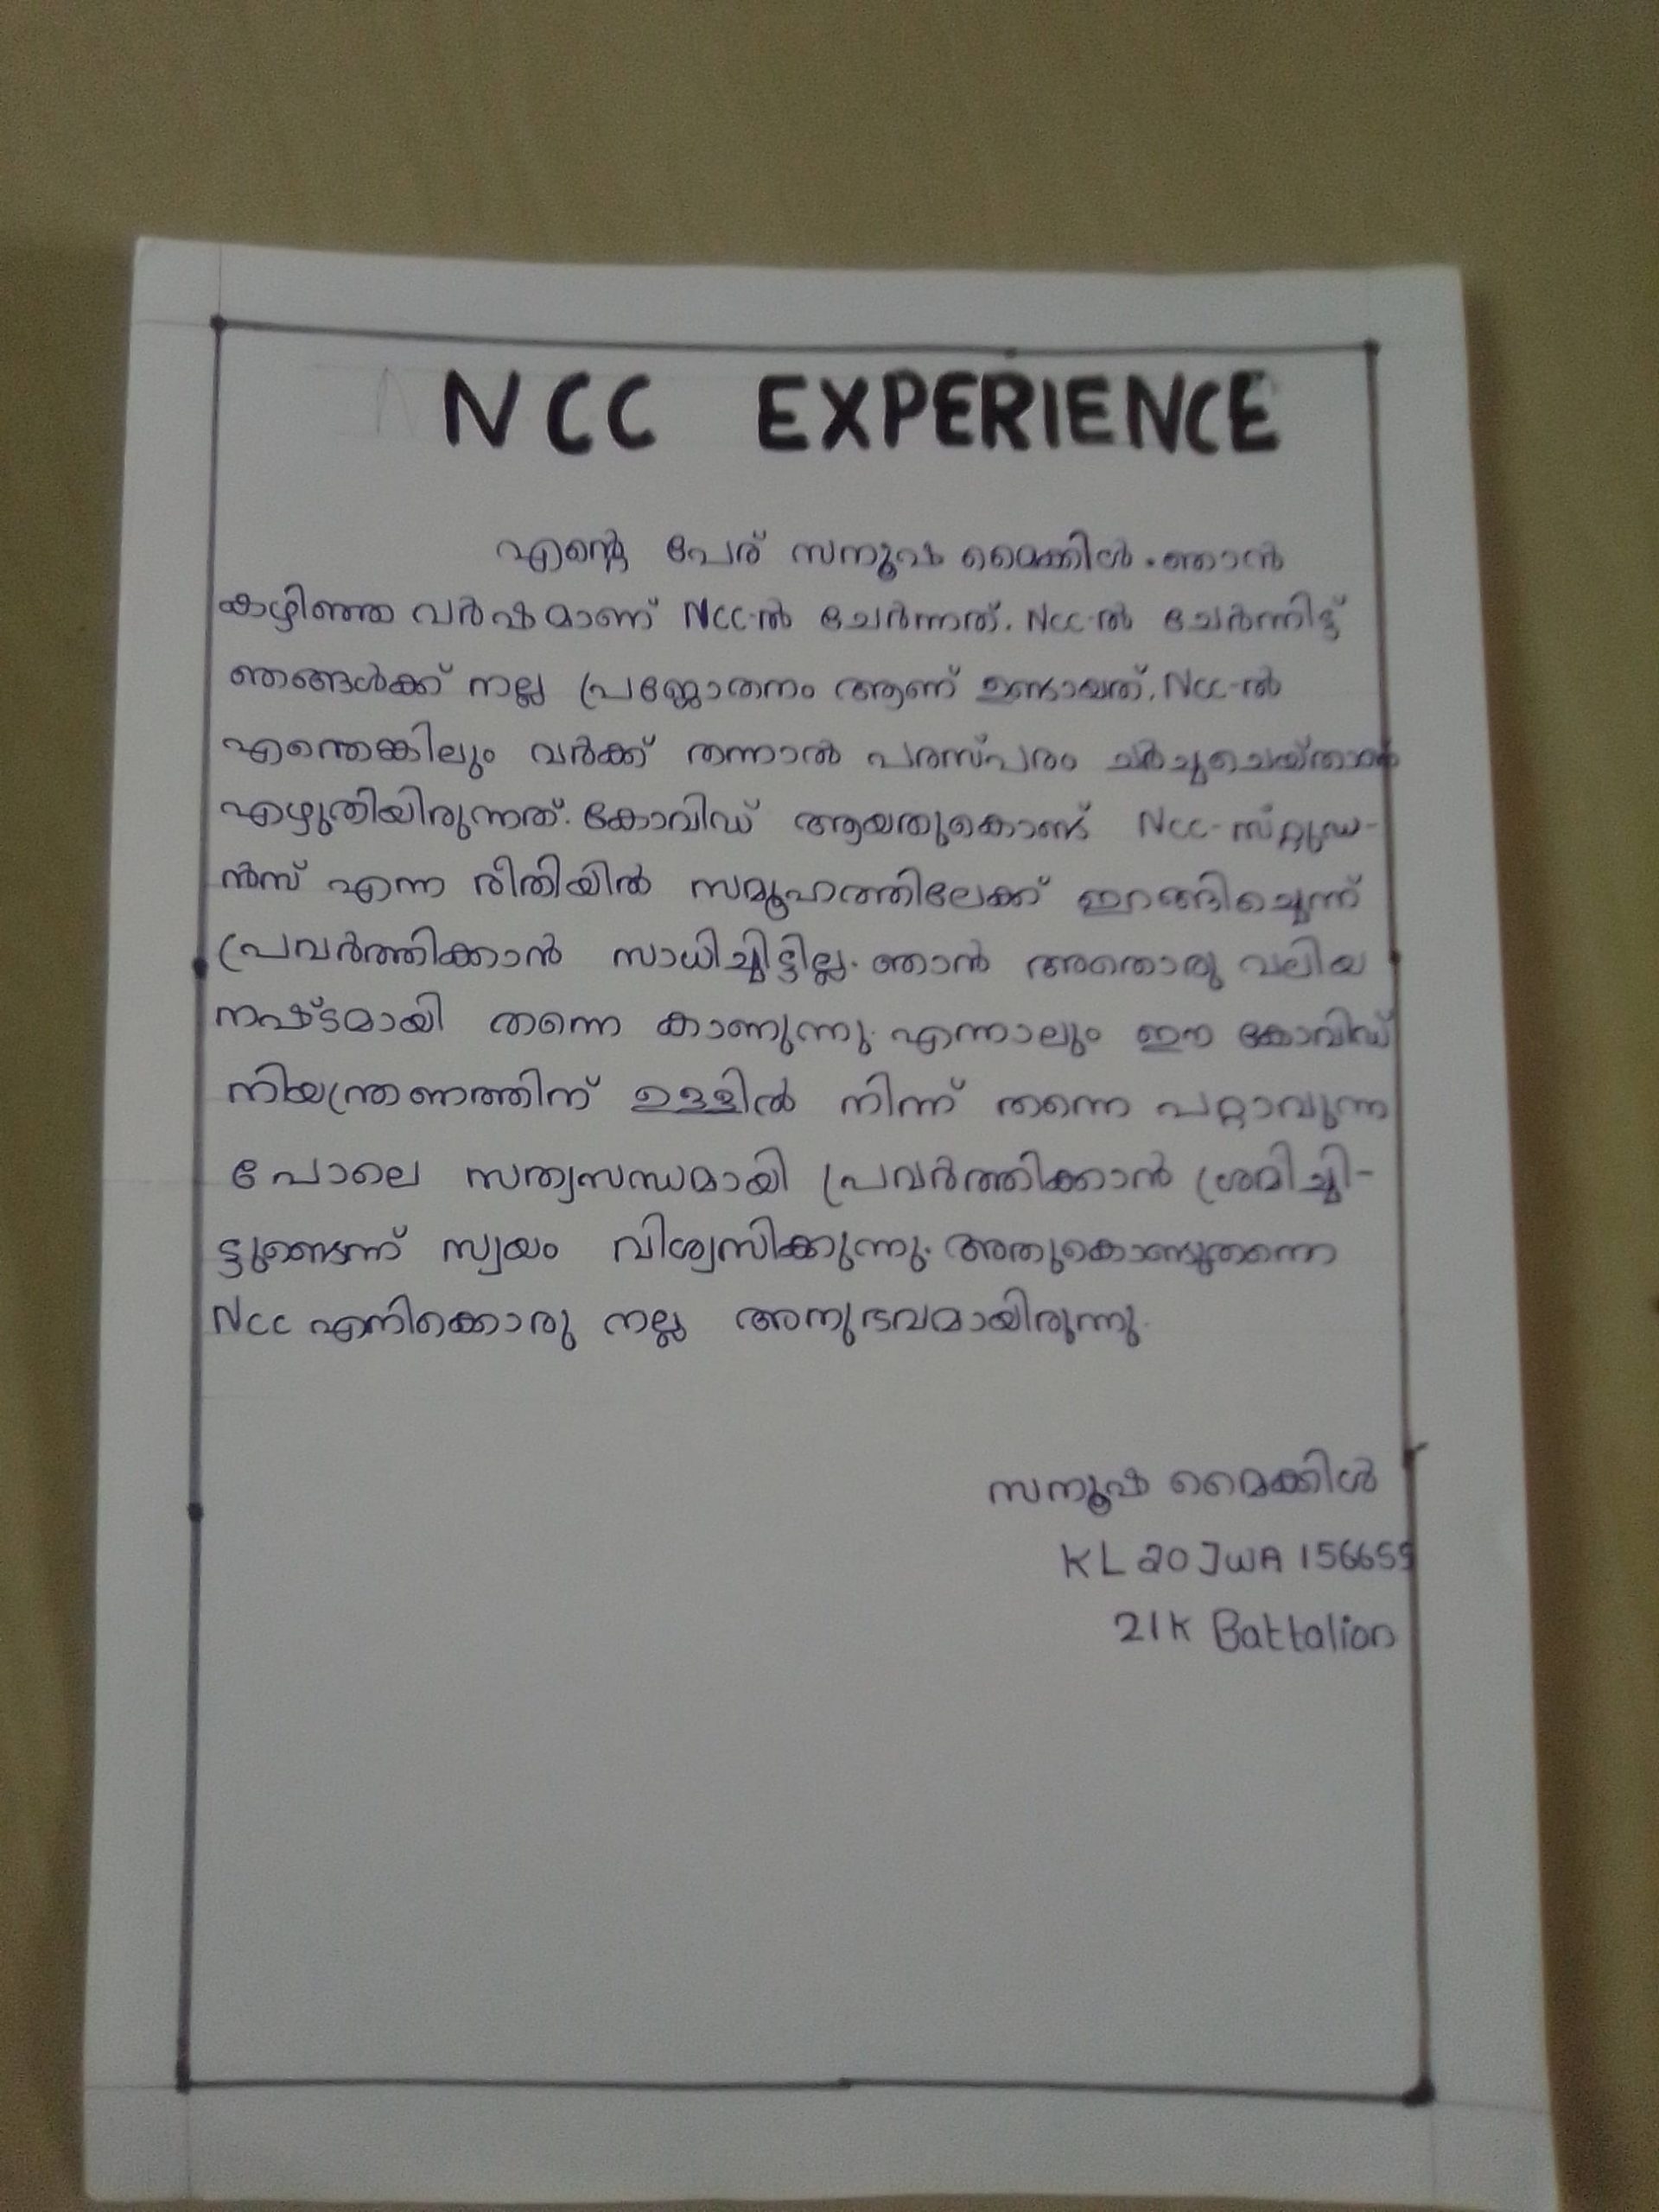 NCC EXPERIENCE
എന്റെ പേര് സനൂഷ മൈക്കിൾ. ഞാൻ
കഴിഞ്ഞ വർഷമാണ് NCC-ൽ ചേർന്നത്. NCC-ൽ ചേർന്നിട്ട്
ഞങ്ങൾക്ക് നല്ല പ്രജോതനം ആണ് ഉണ്ടായത്. NCC-ൽ
എന്തെങ്കിലും വർക്ക് തന്നാൽ പരസ്പരം ചർച്ചചെയ്താണ്
എഴുതിയിരുന്നത്. കോവിഡ് ആയതുകൊണ്ട് NCC-സ്റ്റുഡ-
ൻസ് എന്ന രീതിയിൽ സമൂഹത്തിലേക്ക് ഇറങ്ങിച്ചെന്ന്
പ്രവർത്തിക്കാൻ സാധിച്ചിട്ടില്ല. ഞാൻ അതൊരു വലിയ
നഷ്ടമായി തന്നെ കാണുന്നു. എന്നാലും ഈ കോവിഡ്
നിയന്ത്രണത്തിന് ഉള്ളിൽ നിന്ന് തന്നെ പറ്റാവുന്ന
പോലെ സത്യസന്ധമായി പ്രവർത്തിക്കാൻ ശ്രമിച്ചി-
ട്ടുണ്ടെന്ന് സ്വയം വിശ്വസിക്കുന്നു. അതുകൊണ്ടുതന്നെ
NCC എനിക്കൊരു നല്ല അനുഭവമായിരുന്നു.
സനൂഷ മൈക്കിൾ
KL 20 JWA 156659
21K Battalion